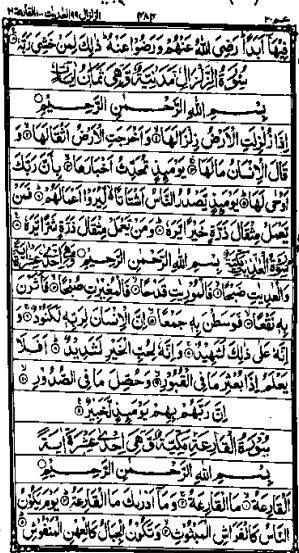 عم ٣٠ ٤٨٢ الزلزال ٩٩ العٰديٰت ١٠٠ القارعة ١٠١
فِيْهَآ اَبَدًا ؕ رَضِيَ اللّٰهُ عَنْهُمْ وَرَضُوْا عَنْهُ ؕ ذٰلِكَ لِمَنْ خَشِيَ رَبَّهٗ
سُوْرَةُ الزِّلْزَالِ مَدَنِيَّةٌ وَّهِيَ ثَمَانُ اٰيٰتٍ
بِسْمِ اللّٰهِ الرَّحْمٰنِ الرَّحِيْمِ
اِذَا زُلْزِلَتِ الْاَرْضُ زِلْزَالَهَا وَاَخْرَجَتِ الْاَرْضُ اَثْقَالَهَا وَ
قَالَ الْاِنْسَانُ مَا لَهَا يَوْمَئِذٍ تُحَدِّثُ اَخْبَارَهَا بِاَنَّ رَبَّكَ
اَوْحٰى لَهَا يَوْمَئِذٍ يَّصْدُرُ النَّاسُ اَشْتَاتًا لِّيُرَوْا اَعْمَالَهُمْ فَمَنْ
يَّعْمَلْ مِثْقَالَ ذَرَّةٍ خَيْرًا يَّرَهٗ وَمَنْ يَّعْمَلْ مِثْقَالَ ذَرَّةٍ شَرًّا يَّرَهٗ
سُوْرَةُ الْعٰدِيٰتِ مَكِّيَّةٌ بِسْمِ اللّٰهِ الرَّحْمٰنِ الرَّحِيْمِ وَّهِيَ اِحْدٰى عَشْرَةَ اٰيَةً
وَالْعٰدِيٰتِ ضَبْحًا فَالْمُوْرِيٰتِ قَدْحًا فَالْمُغِيْرٰتِ صُبْحًا فَاَثَرْنَ
بِهٖ نَقْعًا فَوَسَطْنَ بِهٖ جَمْعًا اِنَّ الْاِنْسَانَ لِرَبِّهٖ لَكَنُوْدٌ وَ
اِنَّهٗ عَلٰى ذٰلِكَ لَشَهِيْدٌ وَاِنَّهٗ لِحُبِّ الْخَيْرِ لَشَدِيْدٌ اَفَلَا
يَعْلَمُ اِذَا بُعْثِرَ مَا فِي الْقُبُوْرِ وَحُصِّلَ مَا فِي الصُّدُوْرِ
اِنَّ رَبَّهُمْ بِهِمْ يَوْمَئِذٍ لَّخَبِيْرٌ
سُوْرَةُ الْقَارِعَةِ مَكِّيَّةٌ وَّهِيَ اِحْدٰى عَشْرَةَ اٰيَةً
بِسْمِ اللّٰهِ الرَّحْمٰنِ الرَّحِيْمِ
اَلْقَارِعَةُ مَا الْقَارِعَةُ وَمَآ اَدْرٰىكَ مَا الْقَارِعَةُ يَوْمَ يَكُوْنُ
النَّاسُ كَالْفَرَاشِ الْمَبْثُوْثِ وَتَكُوْنُ الْجِبَالُ كَالْعِهْنِ الْمَنْفُوْشِ